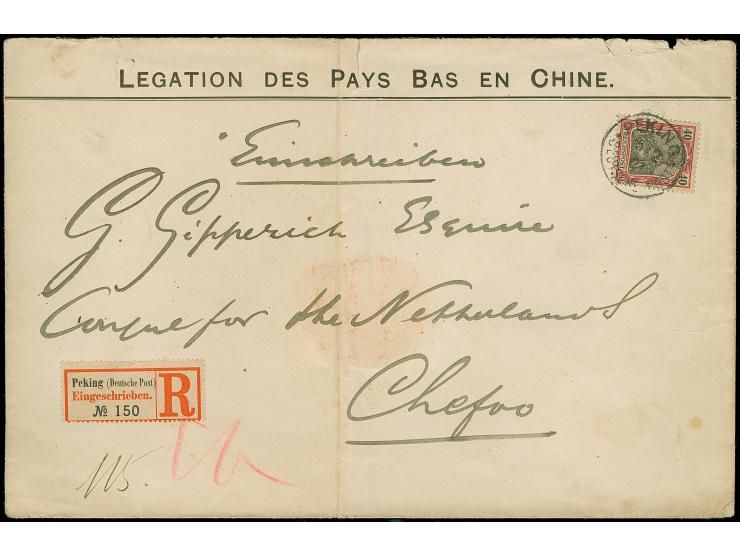 LEGATION DES PAYS BAS EN CHINE.
Einschreiben
40 40
PEKING
G. Gipperich Esquire
Consul for the Netherlands
Chefoo
Peking (Deutsche Post)
Eingeschrieben.
№ 150
R
115.